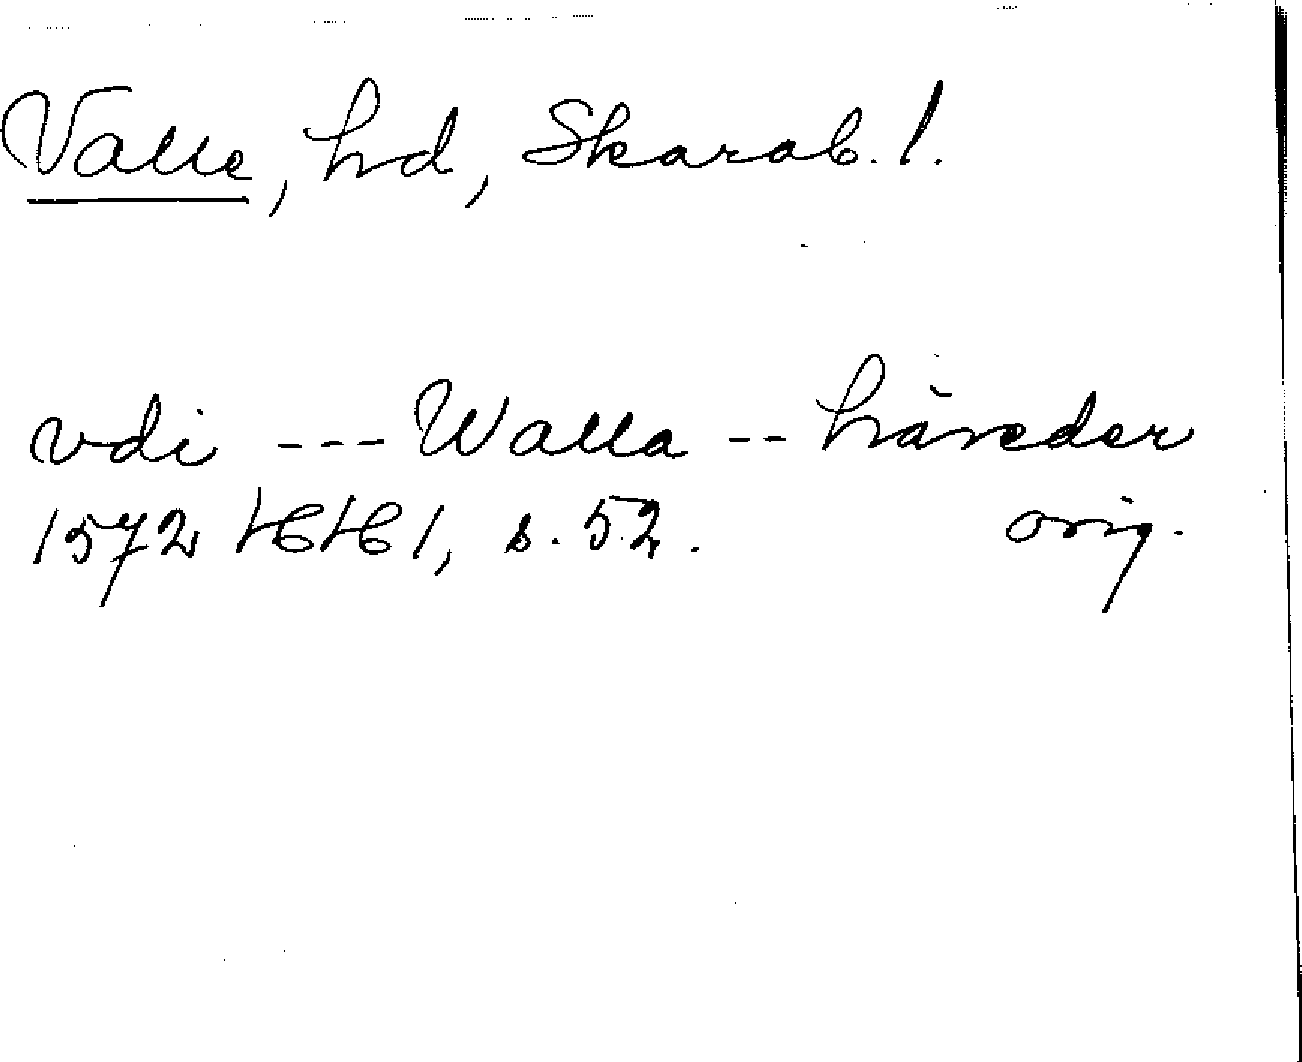 Valle, hd, Skarab. l.
vdi --- Walla -- häreder
1572 HH 1, s. 52. orig.